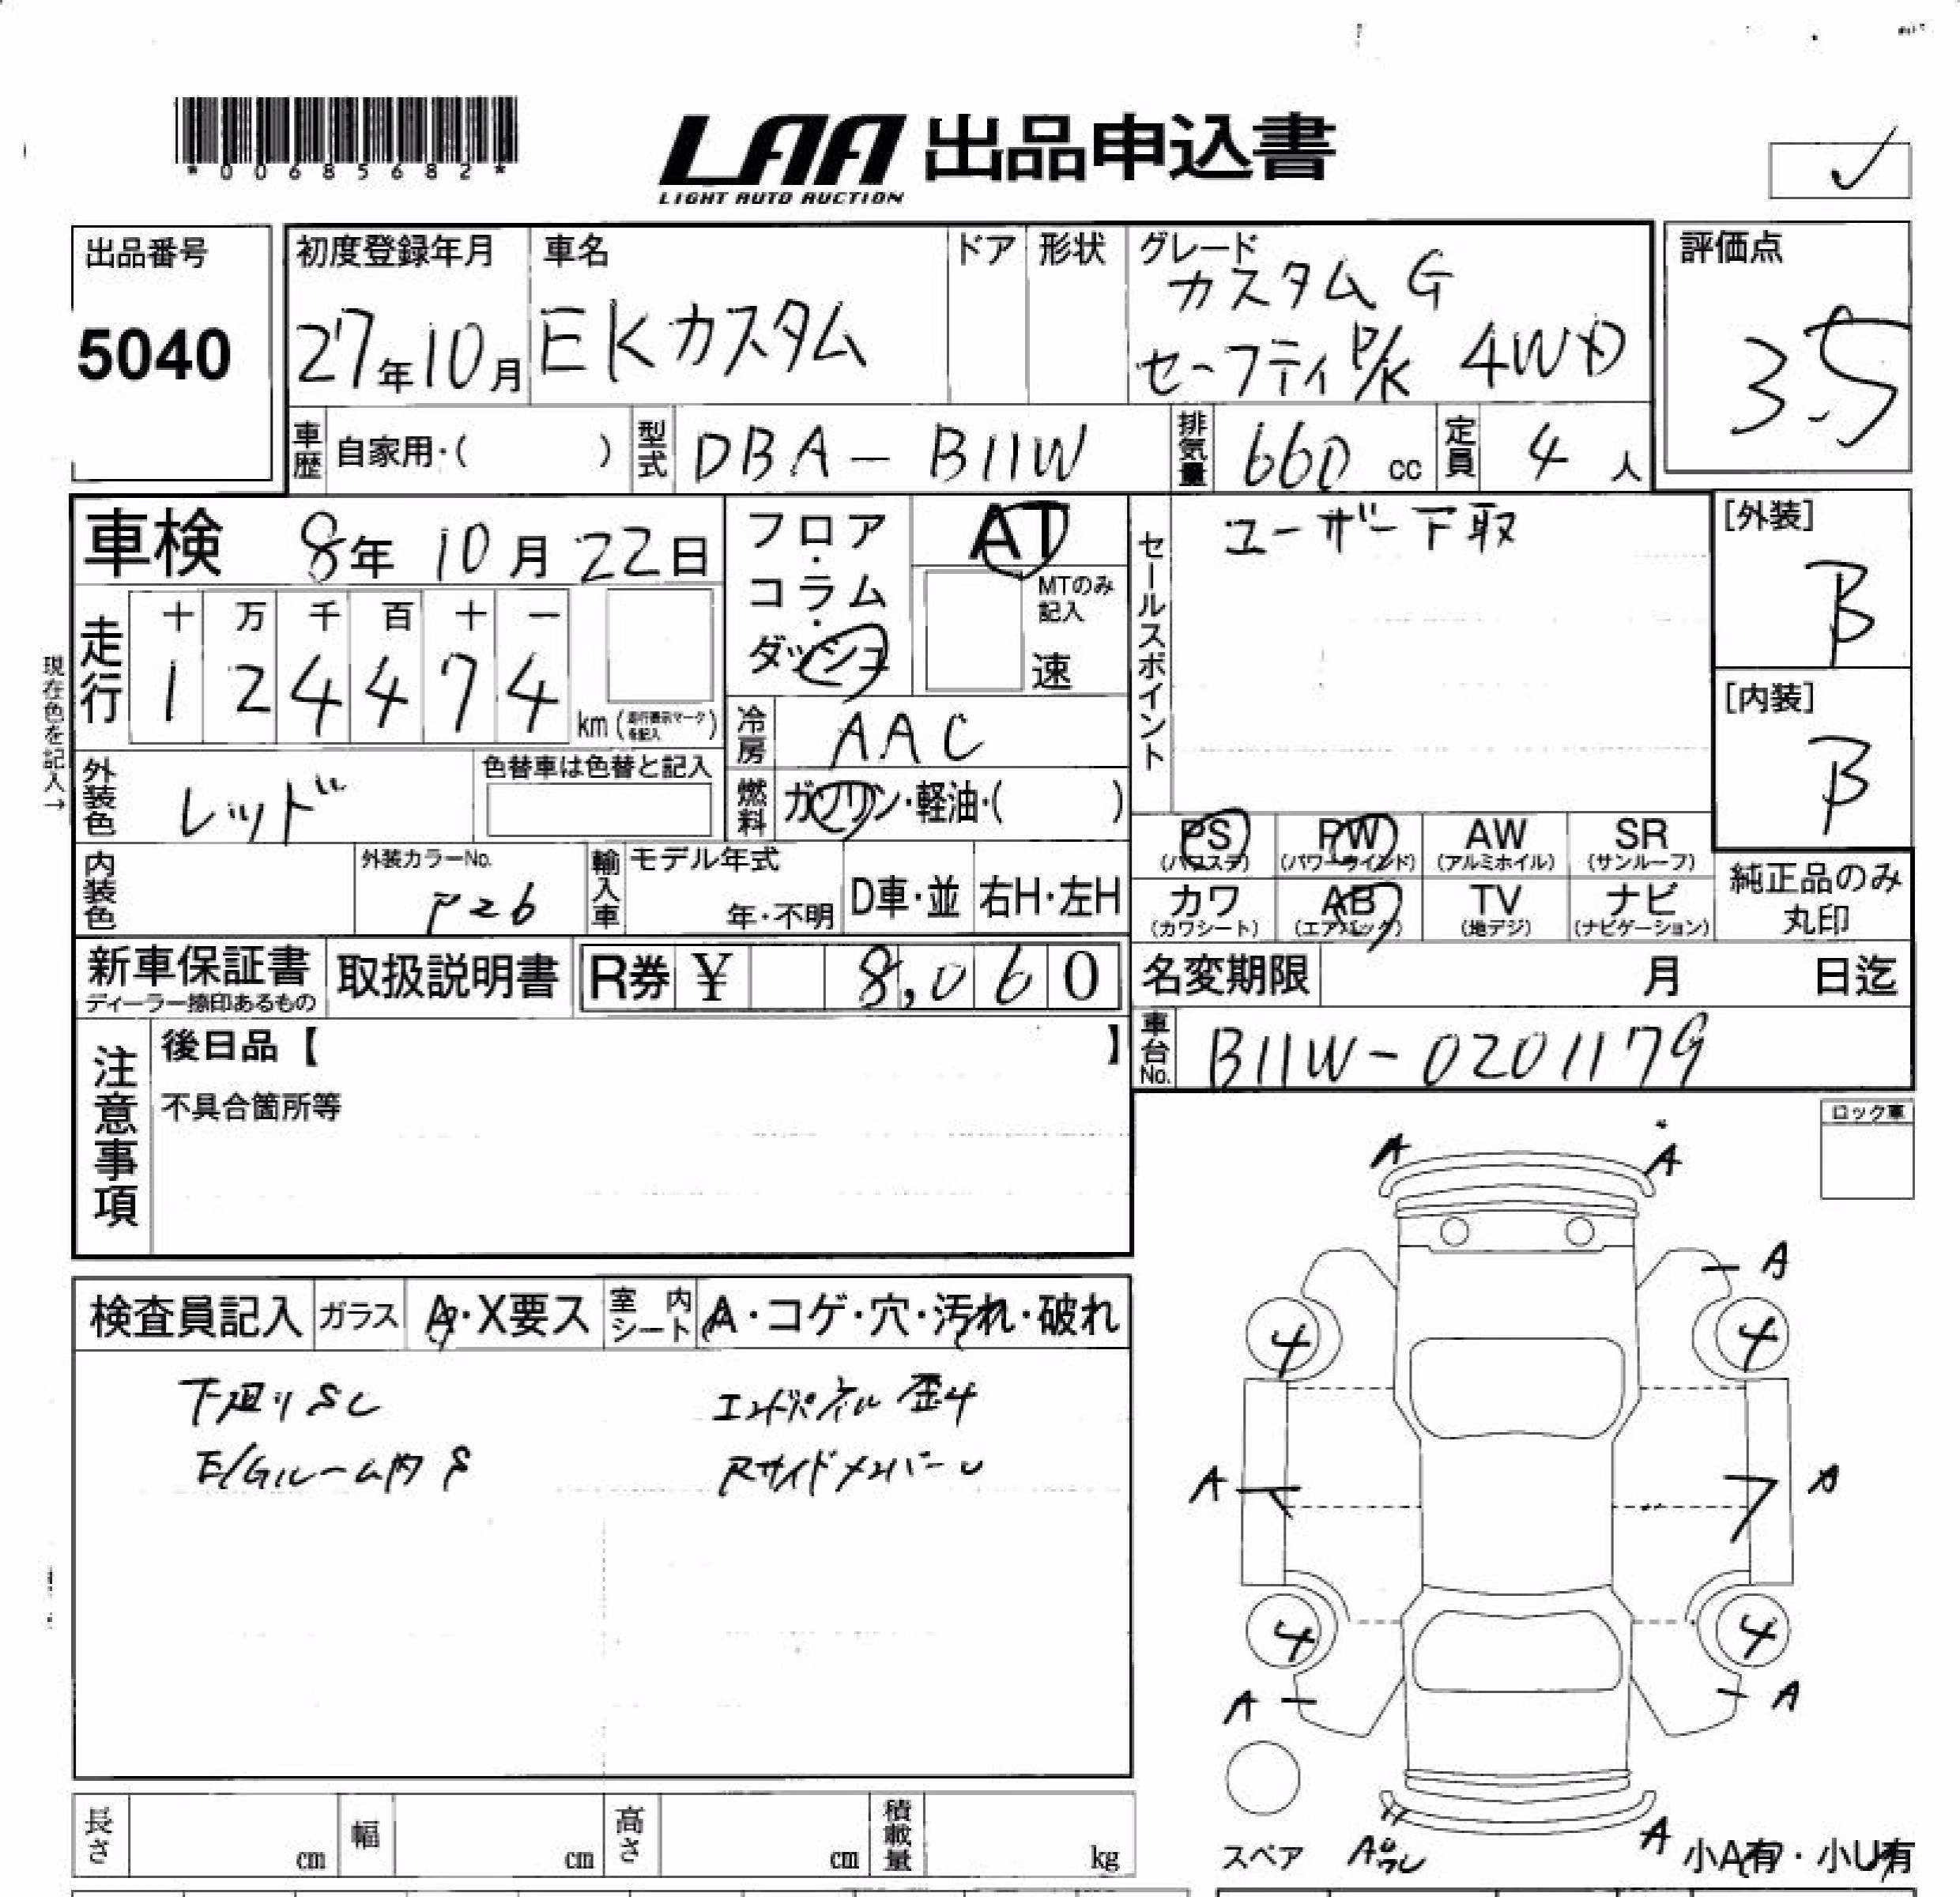 *00685682*
LAA 出品申込書
LIGHT AUTO AUCTION
出品番号
5040
初度登録年月
27年10月
車名
EKカスタム
ドア
形状
グレード
カスタム G
セーフティP/K 4WD
評価点
3.5
車歴
自家用・( )
型式
DBA-B11W
排気量
660 cc
定員
4 人
車検 8年 10月 22日
フロア・コラム・ダッシュ
AT
MTのみ記入
速
セールスポイント
ユーザー下取
[外装]
B
[内装]
B
現在色を記入→
走行
十 万 千 百 十 一
1 2 4 4 7 4
km (走行表示マークを記入)
冷房
AAC
外装色
レッド
色替車は色替と記入
燃料
ガソリン・軽油・( )
PS (パワステ)
PW (パワーウインド)
AW (アルミホイル)
SR (サンルーフ)
カワ (カワシート)
AB (エアバック)
TV (地デジ)
ナビ (ナビゲーション)
純正品のみ丸印
内装色
外装カラーNo.
P26
輸入車
モデル年式
年・不明
D車・並
右H・左H
新車保証書
ディーラー捺印あるもの
取扱説明書
R券 ¥ 8,060
名変期限 月 日迄
車台No.
B11W-0201179
注意事項
後日品【 】
不具合箇所等
ロック車
検査員記入
ガラス
A・X要ス
室内シート
A・コゲ・穴・汚れ・破れ
下廻りSC
エンドパネル歪サ
E/Gルーム内 S
Rサイドメンバーu
A A
A
4 4
A A
4 4
A A
スペア
A
小A有・小U有
長さ cm
幅 cm
高さ cm
積載量 kg